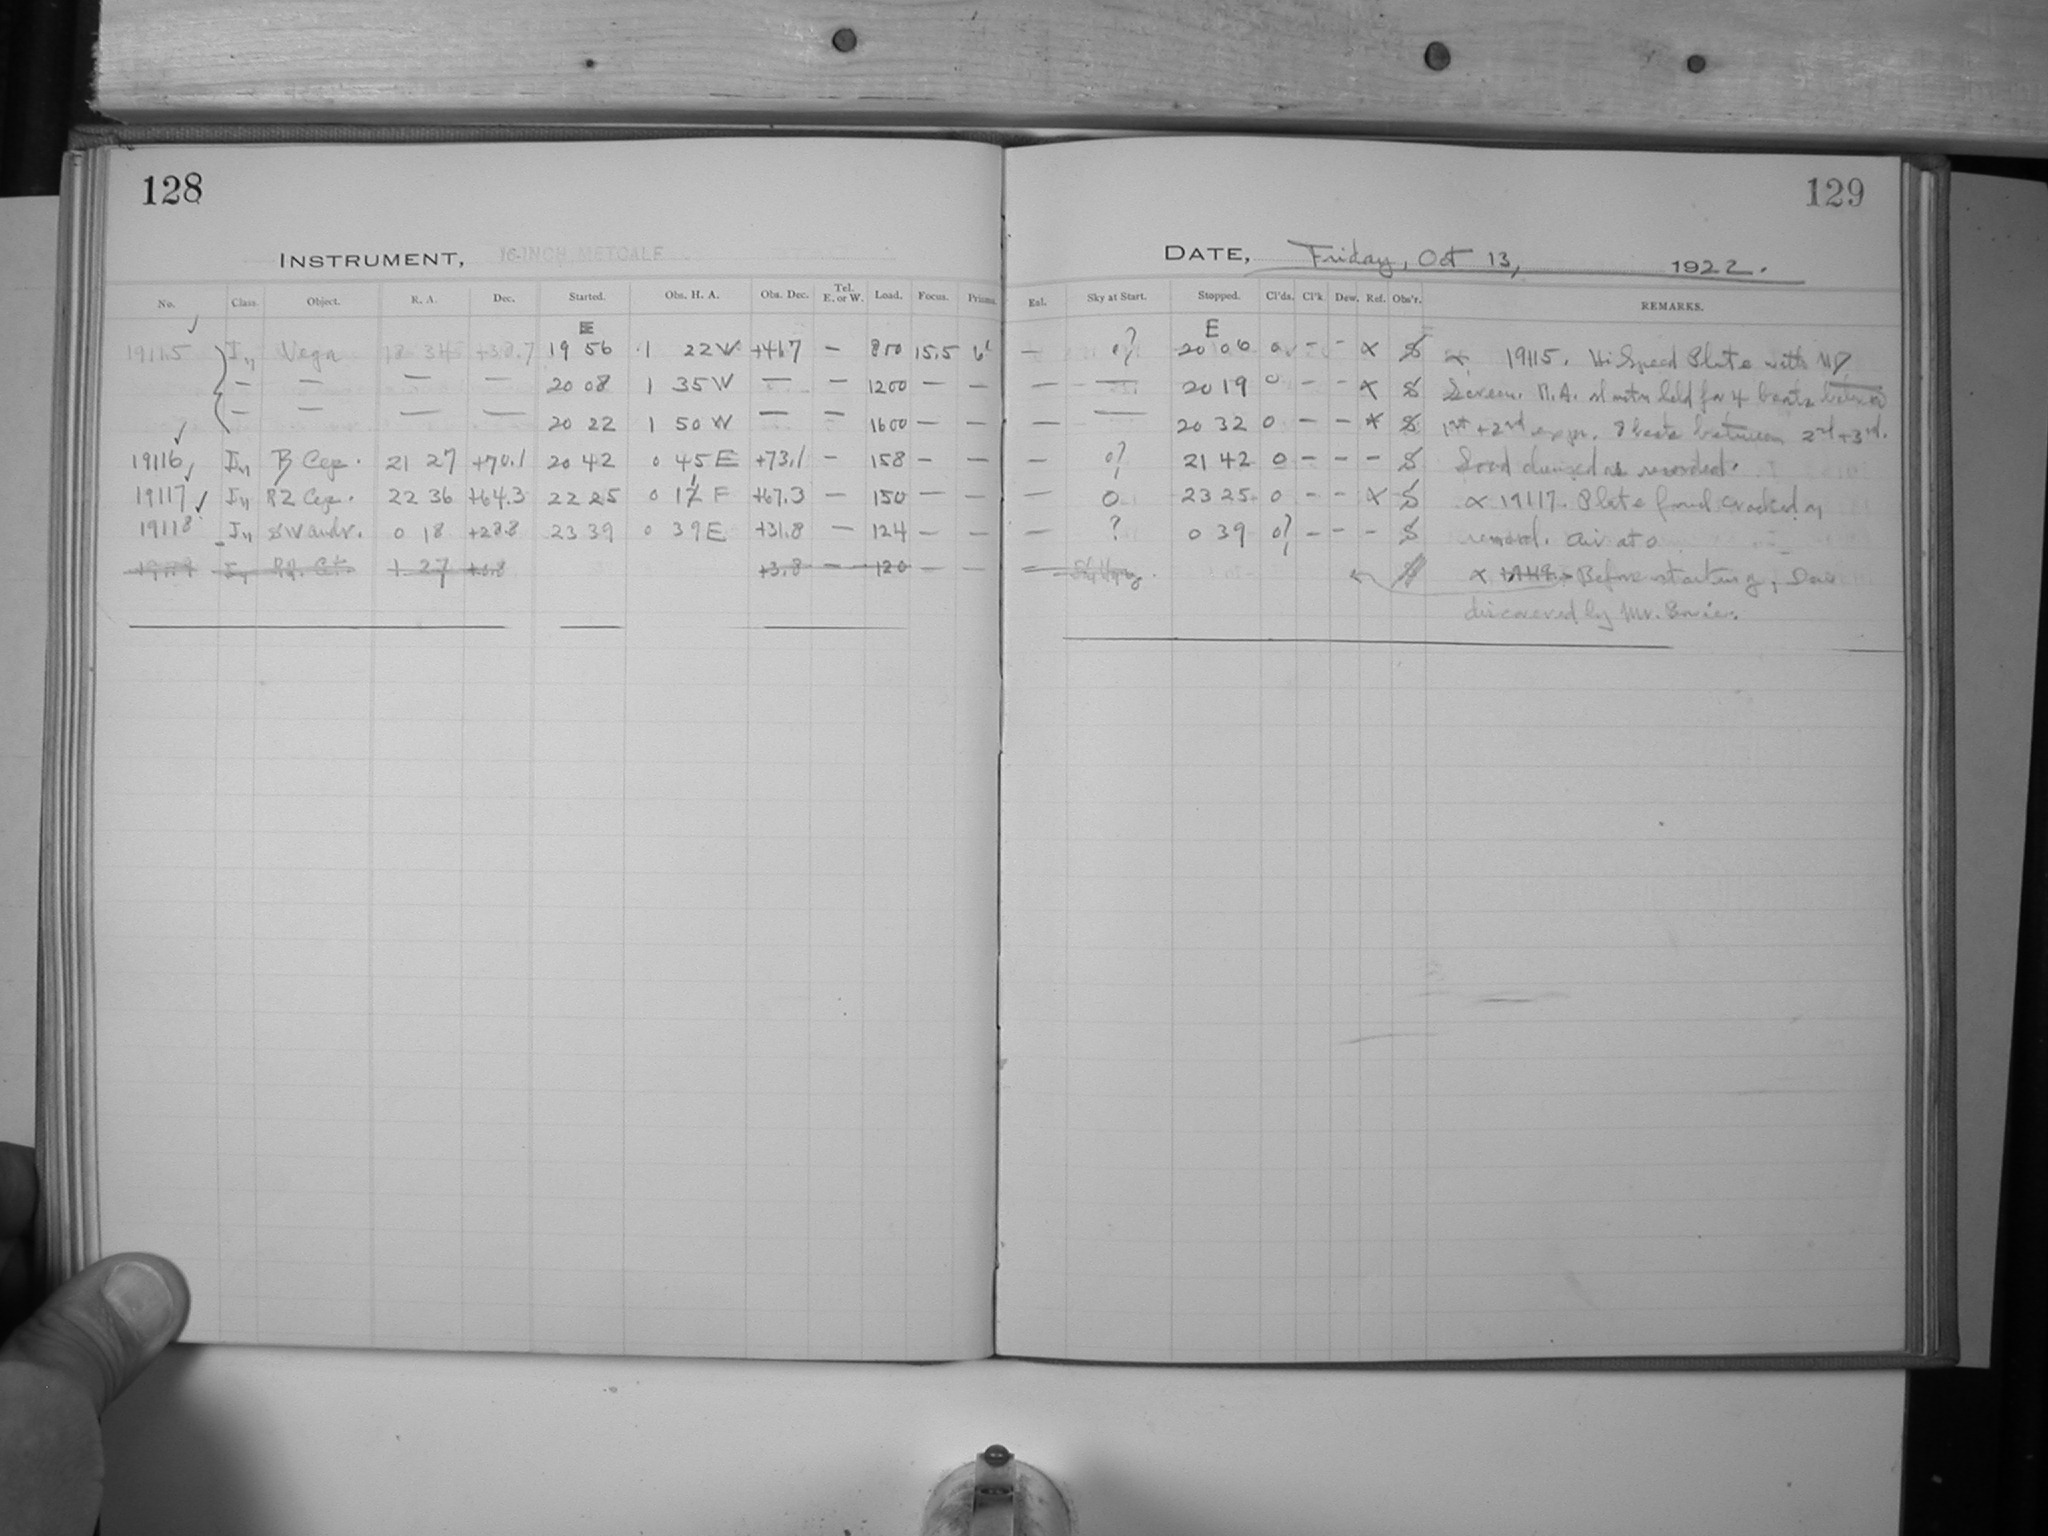 128
INSTRUMENT, 16-INCH METCALF
No. Class. Object. R. A. Dec. Started. Obs. H. A. Obs. Dec. Tel. E. or W. Load. Focus. Prisms.
E
19115 Vega 18 34 +38.7 19 56 1 22 W +41.7 — 800 15.5
— — — — 20 08 1 35 W — — 1200 — —
— — — — 20 22 1 50 W — — 1600 — —
19116 Cep. 21 27 +70.1 20 42 0 45 E +73.1 — 158 — —
19117 RZ Cep. 22 36 +64.3 22 25 0 E +67.3 — 150 — —
19118 SW andr. 0 18 +28.8 23 39 0 39 E +31.8 — 124 — —
1 27 +3.8 120 — —
129
DATE, Friday, Oct 13, 1922.
Enl. Sky at Start. Stopped. Cl'ds. Cl'k. Dew. Ref. Obs'r. REMARKS.
E
— 0? 20 06 0 - - x S x 19115. Hi Speed Plate with
— — 20 19 0 - - x S Screen. R.A. held for 4 beats between
— — 20 32 0 - - x S 1st + 2nd expo. 8 beats between 2nd + 3rd.
— 0? 21 42 0 - - - S as recorded.
— 0 23 25 0 - - x S x 19117. Plate found cracked on
— ? 0 39 0? - - - S at 0
x Before starting, Dew
discovered by Mr.